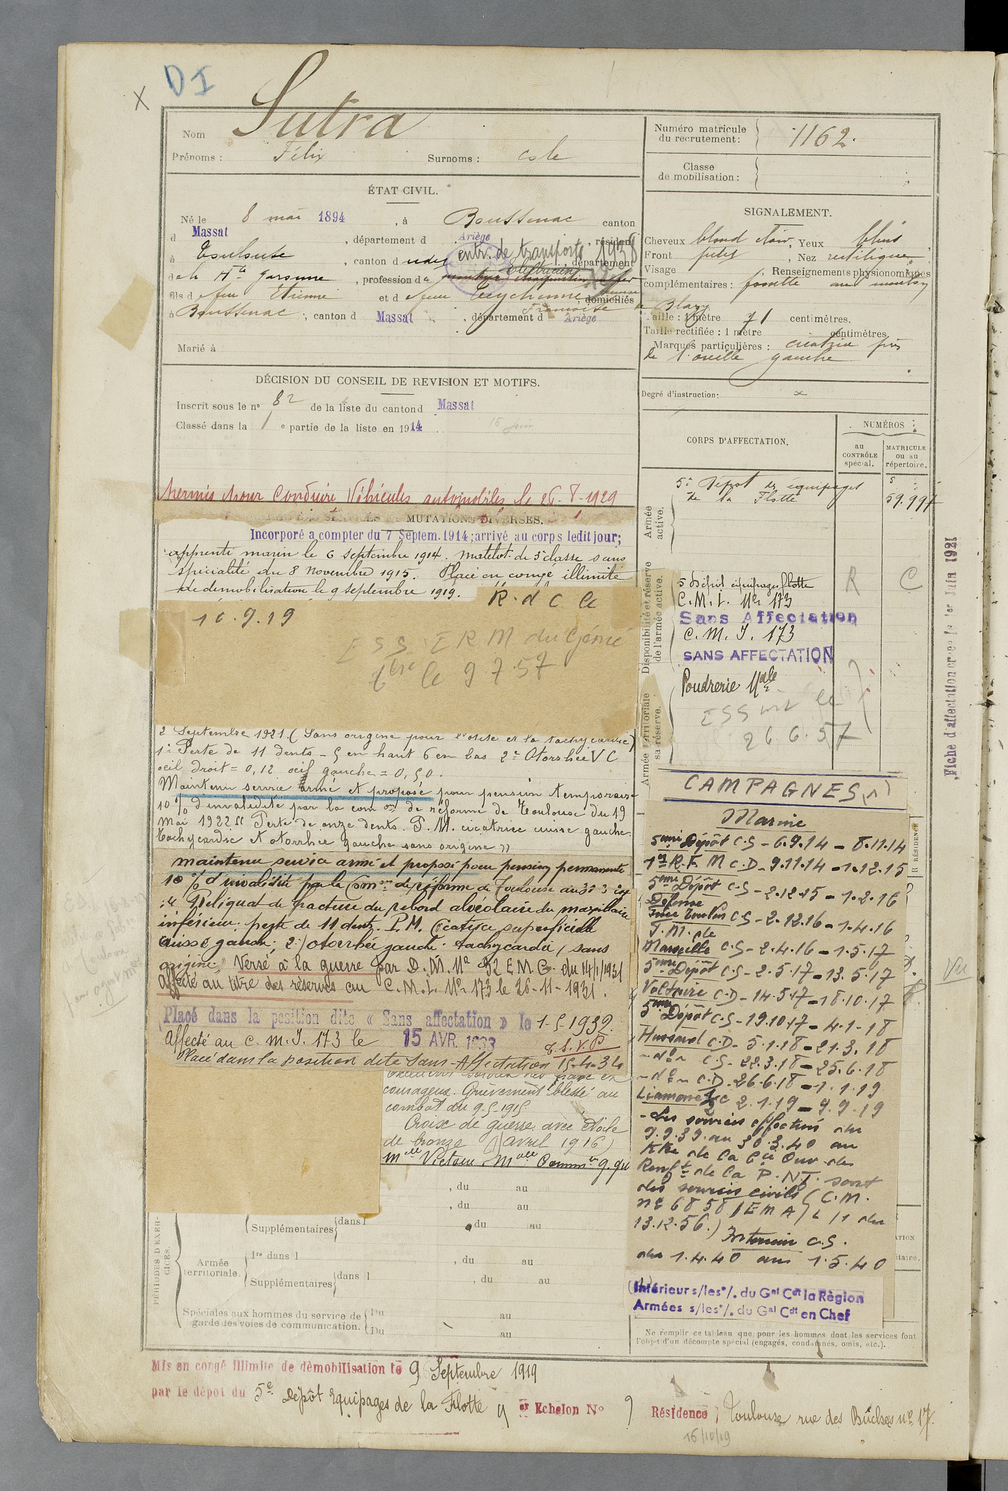 DI
X
Nom Sutra
Prénoms : Félix Surnoms :
Numéro matricule du recrutement : 1162.
Classe de mobilisation :
ÉTAT CIVIL.
Né le 8 mai 1894, à Boussenac canton
d Massat, département d Ariège, résidant
à Toulouse, canton de entr. de transports 1938 département
de la Hte Garonne, profession de électricien
fils de feu Etienne et de feu Eychenne Françoise domiciliés
à Boussenac, canton d Massat, département d Ariège
Marié à
SIGNALEMENT.
Cheveux blond clair, Yeux bleus
Front petit, Nez rectiligne,
Visage Renseignements physionomiques
complémentaires : fossette au menton
Taille : 1 mètre 71 centimètres.
Taille rectifiée : 1 mètre centimètres.
Marques particulières : cicatrice près
de l'oreille gauche
Degré d'instruction: x
DÉCISION DU CONSEIL DE REVISION ET MOTIFS.
Inscrit sous le n° 82 de la liste du canton d Massat
Classé dans la 1 e partie de la liste en 1914
permis pour Conduire Véhicules automobiles le 26-8-1929
MUTATIONS DIVERSES.
Incorporé a compter du 7 Septem.1914; arrivé au corps ledit jour;
apprenti marin le 6 septembre 1914. Matelot de 3e classe sans
spécialité du 8 Novembre 1915. Placé en congé illimité
de démobilisation le 9 septembre 1919. R. d C le
10.9.19
ESS ERM du Génie
le 9 7.57
2 Septembre 1921 (Sans origine pour l'otite et la tachycardie)
1° Perte de 11 dents - 5 en haut 6 en bas 2° Otorrhée V C
oeil droit = 0,12 oeil gauche = 0,50.
Maintenu service armé et proposé pour pension temporaire
10 % d'invalidité par la com on de réforme de Toulouse du 19
mai 1922 "Perte de onze dents. P.M. cicatrice cuisse gauche.
Tachycardie et otorrhée gauche sans origine"
maintenu service armé et proposé pour pension permanente
10 % d'invalidité par la Comon de réforme de Toulouse du
Reliquat de fracture du rebord alvéolaire du maxillaire
inférieur, perte de 11 dents. P.M. Cicatrice superficielle
cuisse gauche; 2°) otorrhée gauche. tachycardie, sans
origine. Versé à la guerre par D.M. N° 92 E M G. du 14/1/1931
Affecté au titre des réserves au C.M.I. N° 173 le 26-11-1931.
Placé dans la position dite « Sans affectation » le 1-5-1932.
Affecté au C.M.I. 173 le 15 AVR. 1933
Placé dans la position dite Sans Affectation 15-4-34
courageux. Grièvement blessé au
combat du 9.5.1915
Croix de guerre avec étoile
de bronze (avril 1916)
Mlle Victoire. Mlle Commve g. gu
CORPS D'AFFECTATION.
NUMÉROS
au CONTRÔLE spécial.
MATRICULE ou au répertoire.
Armée active.
5e Dépot des équipages
de la Flotte
59.997
Disponibilité et réserve de l'armée active.
5 Dépôt équipages flotte
C.M.I. N° 173
Sans Affectation
C.M.I. 173
SANS AFFECTATION
R
C
Armée territoriale et sa réserve.
Poudrerie Nale
26.6.57
Fiche d'affectation créée le 1er Juin 1921
CAMPAGNES (1)
Marine
5ème Dépôt C.S - 6.9.14 - 8.11.14
1er R.F.M C.D - 9.11.14 - 1.12.15
5ème Dépôt C.S - 2.12.15 - 1.2.16
Défense
Fixe Toulon C.S - 2.2.16 - 1.4.16
Marseille C.S - 2.4.16 - 1.5.17
5ème Dépôt C.S - 2.5.17 - 13.5.17
Voltaire C.D - 14.5.17 - 18.10.17
5ème Dépôt C.S - 19.10.17 - 4.1.18
C.D - 5.1.18 - 21.3.18
- d° - C.S - 22.3.18 - 25.6.18
- d° - C.D - 26.6.18 - 1.1.19
Liamone C 2.1.19 - 9.9.19
- Les services effectués du
9.9.39 au 30.3.40 au
de la Cie Ouv. de
Renft de la P.N.T. sont
des services civils (C.M.
n° 6858/EMA/L 11 du
13.12.56.) Intérieur C.S.
du 1.4.40 au 1.5.40
(1) Intérieur s/les °/. du Gal Cdt la Région
Armées s/les °/. du Gal Cdt en Chef
Ne remplir ce tableau que pour les hommes dont les services font
l'objet d'un décompte spécial (engagés, condamnés, omis, etc.).
PÉRIODES D'EXERCICES.
, du au
, du au
Supplémentaires dans l , du au
Armée territoriale. 1re dans l , du au
Supplémentaires dans l , du au
Spéciales aux hommes du service de garde des voies de communication. Du au
Du au
Mis en congé illimité de démobilisation le 9 Septembre 1919
par le dépot du 5e Dépôt Equipages de la Flotte
er Echelon N° 9 Résidence : Toulouse rue des Bûches n° 17.
16/10/19